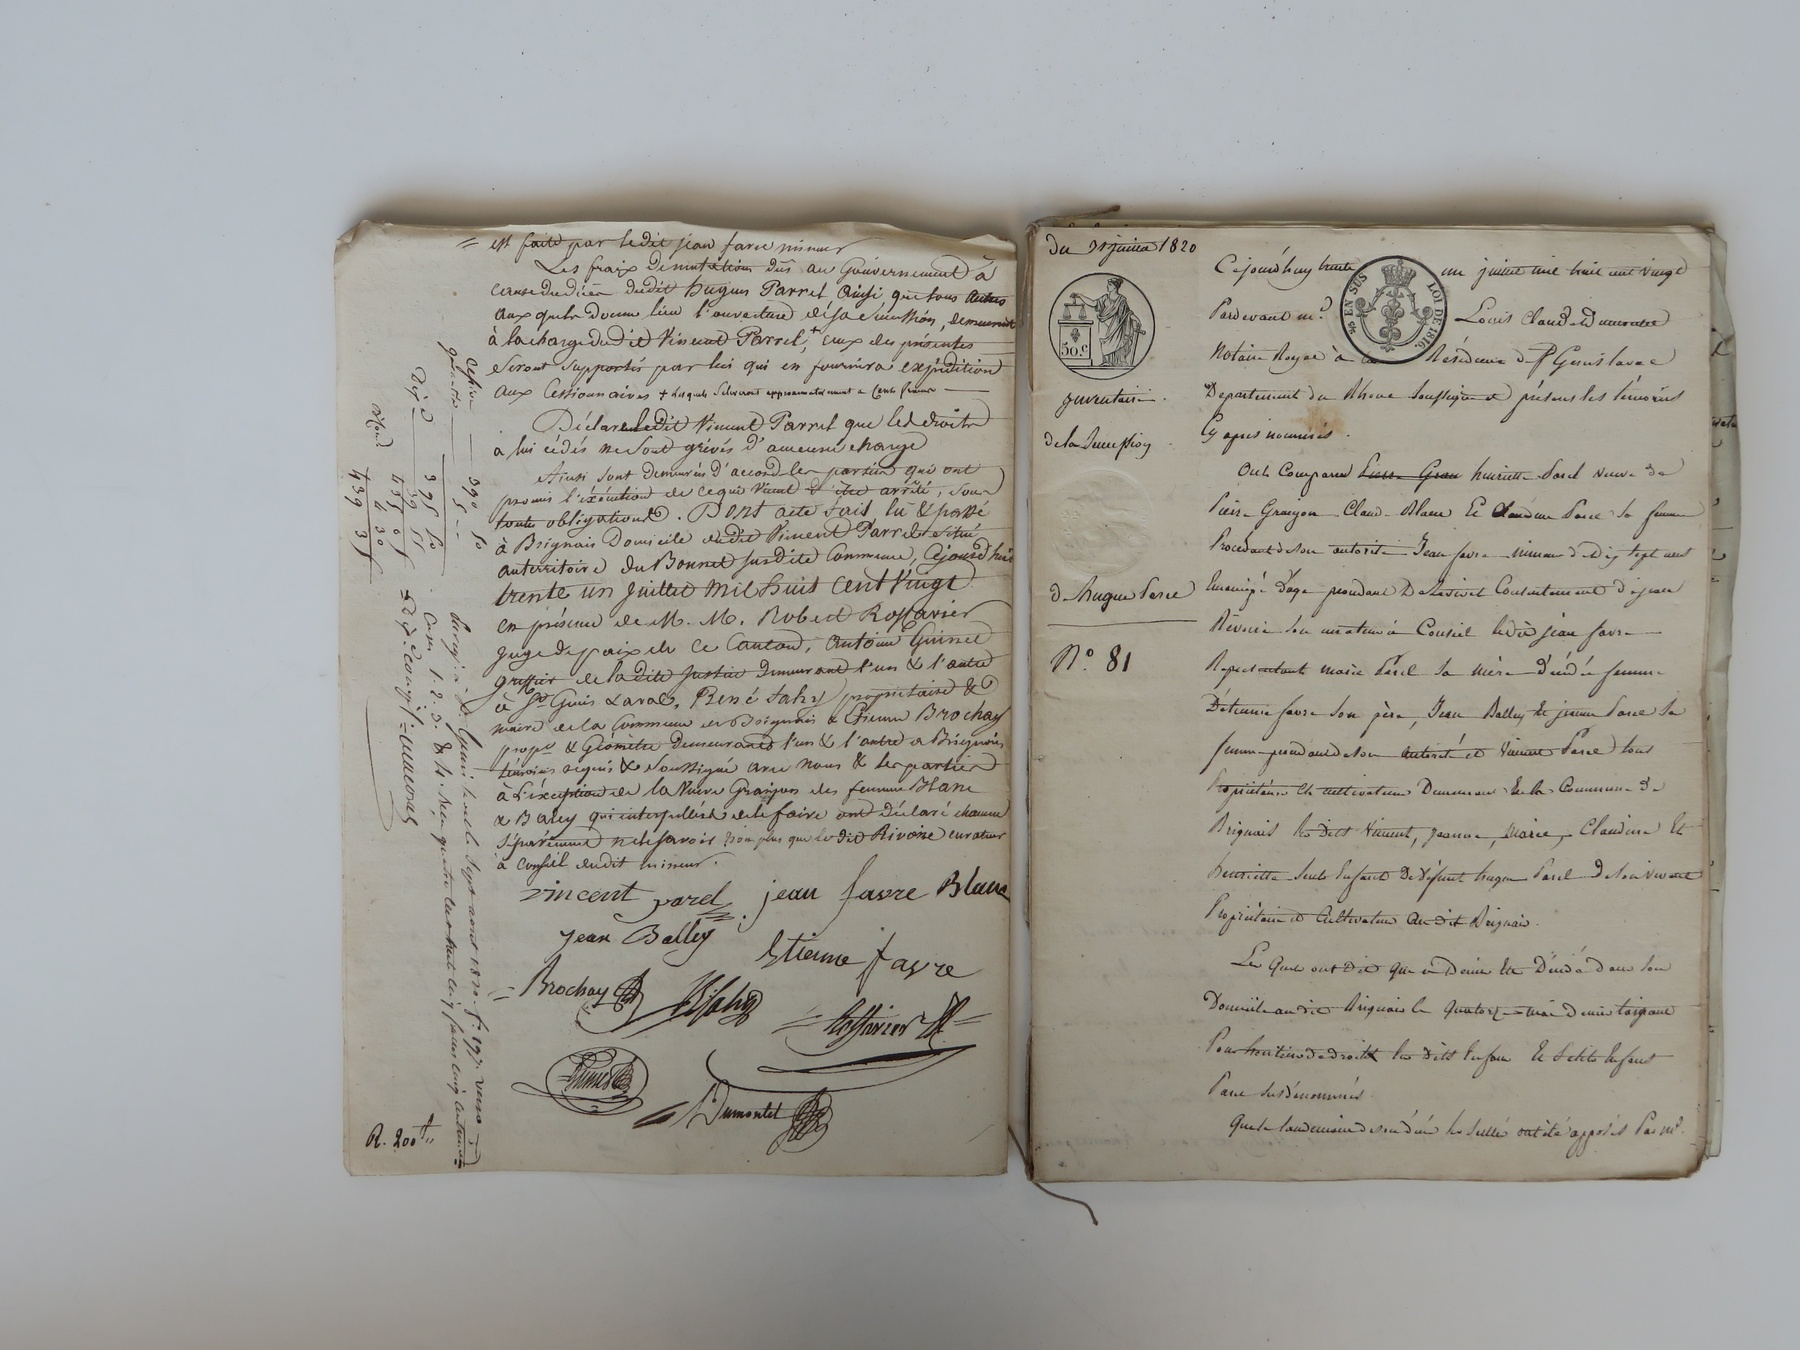 est faite par ledit jean favre mineur
Les fraix de mutation dûs au Gouvernement à
cause du décès dudit hugues Parret Ainsi que tous autres
aux quels donne lieu l'ouverture de sa succession, demeurent
à la charge dudit Vincent Parret, + ceux des présentes
Seront Supportés par lui qui en fournira expédition
aux Cessionnaires + lesquels S'éleveront approximativement a Cent francs
Déclare ledit Vincent Parret que les droits
à lui cédés ne Sont grévés d'aucune charge
Ainsi sont demeurés d'accord les parties qui ont
promis l'exécution de ce qui Vient d'être arrêté, sous
toute obligations. Dont acte fait lu & passé
à Brignais Domicile dudit Vincent Parret situé
au territoire du Bonnet Susdite Commune, Cejourd'hui
trente un Juillet Mil huit Cent Vingt
en présence de M. M. Robert Roffavier
juge de paix de ce Canton, Antoine Guinet
greffier de la dite Justice Demeurant l'un & l'autre
à St. Genis Laval, René Jahy propriétaire &
maire de la Commune de Brignais & Etienne Brochay
propre. & Géomètre Demeurants l'un & l'autre a Brignais
témoins requis & Soussignés avec Nous & les parties
à L'exception de la Veuve Granjon des femmes Blanc
& Balley qui interpellées de le faire ont déclaré chacune
Séparément ne le Savoir non plus que le dit Rivoire curateur
à Conseil dudit mineur.
vincent parel jean favre Blanc
jean Balley Etienne favre
Brochay RJahy Roffavier
Guinet
Dumontet
R. 200 f
Cession 390 50
quitte 5
395 50
Dixe 39 55
435 05
4 30
439 35
du 31 juillet 1820
50 c
inventaire
de la Succession
d. hugue Parel
N.º 81
EN SUS LOI DE 1816.
Cejourd'huy trente un juillet mil huit cent vingt
Pardevant me. Louis Claude Dumontet
Notaire Royal à la Résidence de St Genis Laval
Departement du Rhone Soussigné et présens les témoins
Cy après nommés.
Ont Comparu henriette Parel veuve de
Pierre Granjon Claude Blanc Et Claudine Parel Sa femme
Procédant de Son autorité Jean favre mineur de dix sept ans
Emancipé D'age procédant De L'avis et Consentement de jean
Rivoire Son curateur à Conseil ledit jean favre
Représentant marie Parel Sa mère Décédée femme
D'étienne favre Son père, Jean Balley Et jeanne Parel Sa
femme procédant de Son autorité et Vincent Parel tous
Propriétaires Et cultivateurs Demeurans En la Commune de
Brignais Les dits Vincent, jeanne, Marie, Claudine Et
henriette Seuls Enfants De Défunt hugue Parel de Son vivant
Propriétaire et Cultivateur Au dit Brignais.
Les Quels ont Dit que ce Dernier Est Décédé dans Son
Domicile au dit Brignais le Quatorze mai dernier laissant
Pour héritiers de droits les dits Enfans Et Petits Enfans
Parel Sus dénommés.
Que le lendemain de Son décès les Scellés ont été apposés Par mr.